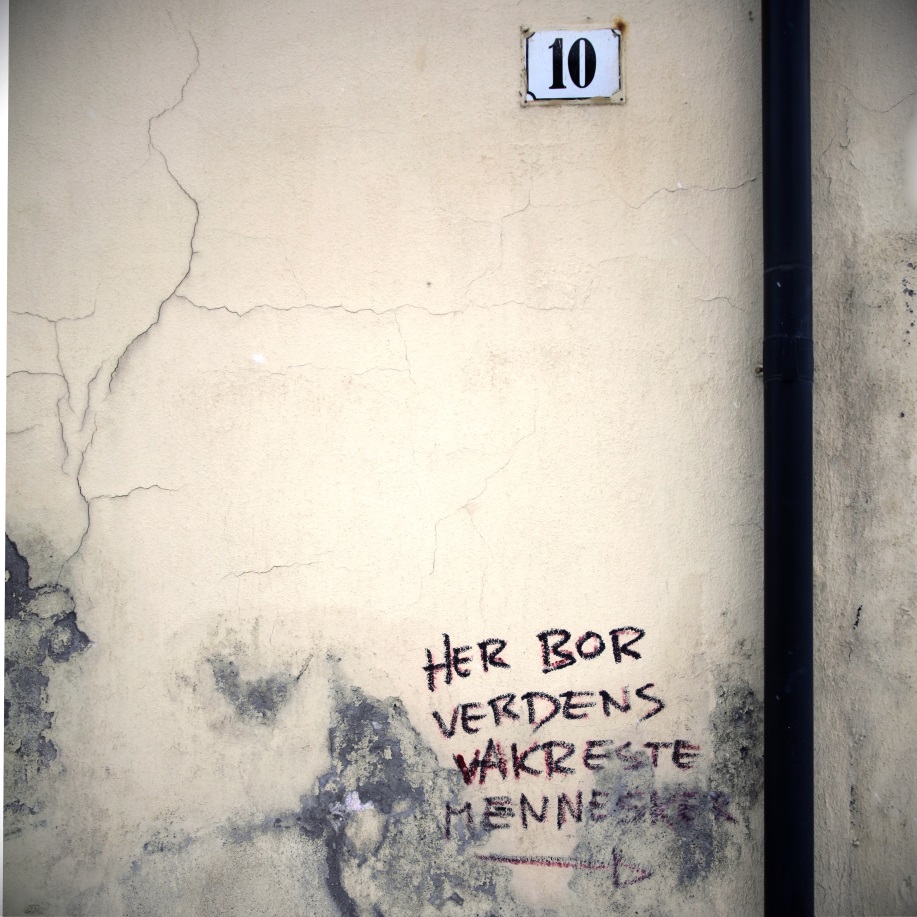 10
HER BOR
VERDENS
VAKRESTE
MENNESKER